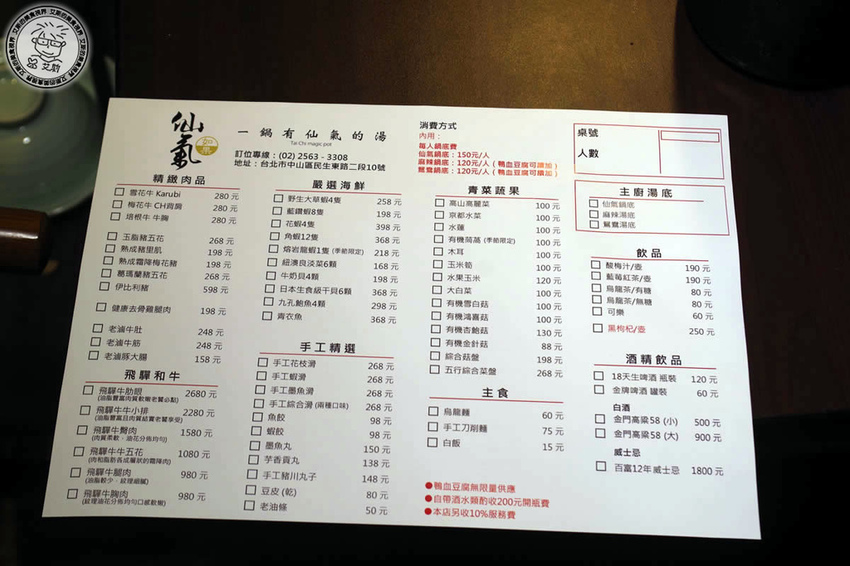 艾斯的美食視界
艾斯
仙氣
如集
一鍋有仙氣的湯
Tai Chi magic pot
訂位專線：(02) 2563 - 3308
地址：台北市中山區民生東路二段10號
消費方式
內用：
每人鍋底費
仙氣鍋底：150元/人
麻辣鍋底：120元/人（鴨血豆腐可續加）
鴛鴦鍋底：120元/人（鴨血豆腐可續加）
桌號
人數
主廚湯底
仙氣鍋底
麻辣湯底
鴛鴦湯底
精緻肉品
雪花牛 Karubi 280 元
梅花牛 CH肩胸 280 元
培根牛 牛胸 280 元
玉脂豬五花 268 元
熟成豬里肌 198 元
熟成霜降梅花豬 198 元
葛瑪蘭豬五花 268 元
伊比利豬 598 元
健康去骨雞腿肉 198 元
老滷牛肚 248 元
老滷牛筋 248 元
老滷豚大腸 158 元
飛驒和牛
飛驒牛肋眼 2680 元
飛驒牛牛小排 2280 元
飛驒牛臀肉 1580 元
(肉質柔軟、油花分佈均勻)
飛驒牛牛五花 1080 元
(肉和脂肪各成層狀的霜降肉)
飛驒牛腿肉 980 元
(油脂較少、紋理細膩)
飛驒牛胸肉 980 元
(紋理油花分佈均勻口感軟嫩)
嚴選海鮮
野生大草蝦4隻 258 元
藍鑽蝦8隻 198 元
花蝦4隻 398 元
角蝦12隻 368 元
熔岩龍蝦1隻 (季節限定) 218 元
紐澳良淡菜6顆 168 元
牛奶貝4顆 168 元
日本生食級干貝6顆 368 元
九孔鮑魚4顆 298 元
青衣魚 368 元
手工精選
手工花枝滑 268 元
手工蝦滑 268 元
手工墨魚滑 268 元
手工綜合滑 (兩種口味) 268 元
魚餃 98 元
蝦餃 98 元
墨魚丸 150 元
芋香貢丸 138 元
手工豬川丸子 148 元
豆皮 (乾) 80 元
老油條 50 元
青菜蔬果
高山高麗菜 100 元
京都水菜 100 元
水蓮 100 元
有機茼萵 (季節限定) 100 元
木耳 100 元
玉米筍 100 元
水果玉米 120 元
大白菜 100 元
有機雪白菇 100 元
有機鴻喜菇 100 元
有機杏鮑菇 130 元
有機金針菇 88 元
綜合菇盤 198 元
五行綜合菜盤 268 元
主食
烏龍麵 60 元
手工刀削麵 75 元
白飯 15 元
●鴨血豆腐無限量供應
●自帶酒水類酌收200元開瓶費
●本店另收10%服務費
飲品
酸梅汁/壺 190 元
藍莓紅茶/壺 190 元
烏龍茶/有糖 80 元
烏龍茶/無糖 80 元
可樂 60 元
黑枸杞/壺 250 元
酒精飲品
18天生啤酒 瓶裝 120 元
金牌啤酒 罐裝 60 元
白酒
金門高粱58 (小) 500 元
金門高粱58 (大) 900 元
威士忌
百富12年威士忌 1800 元